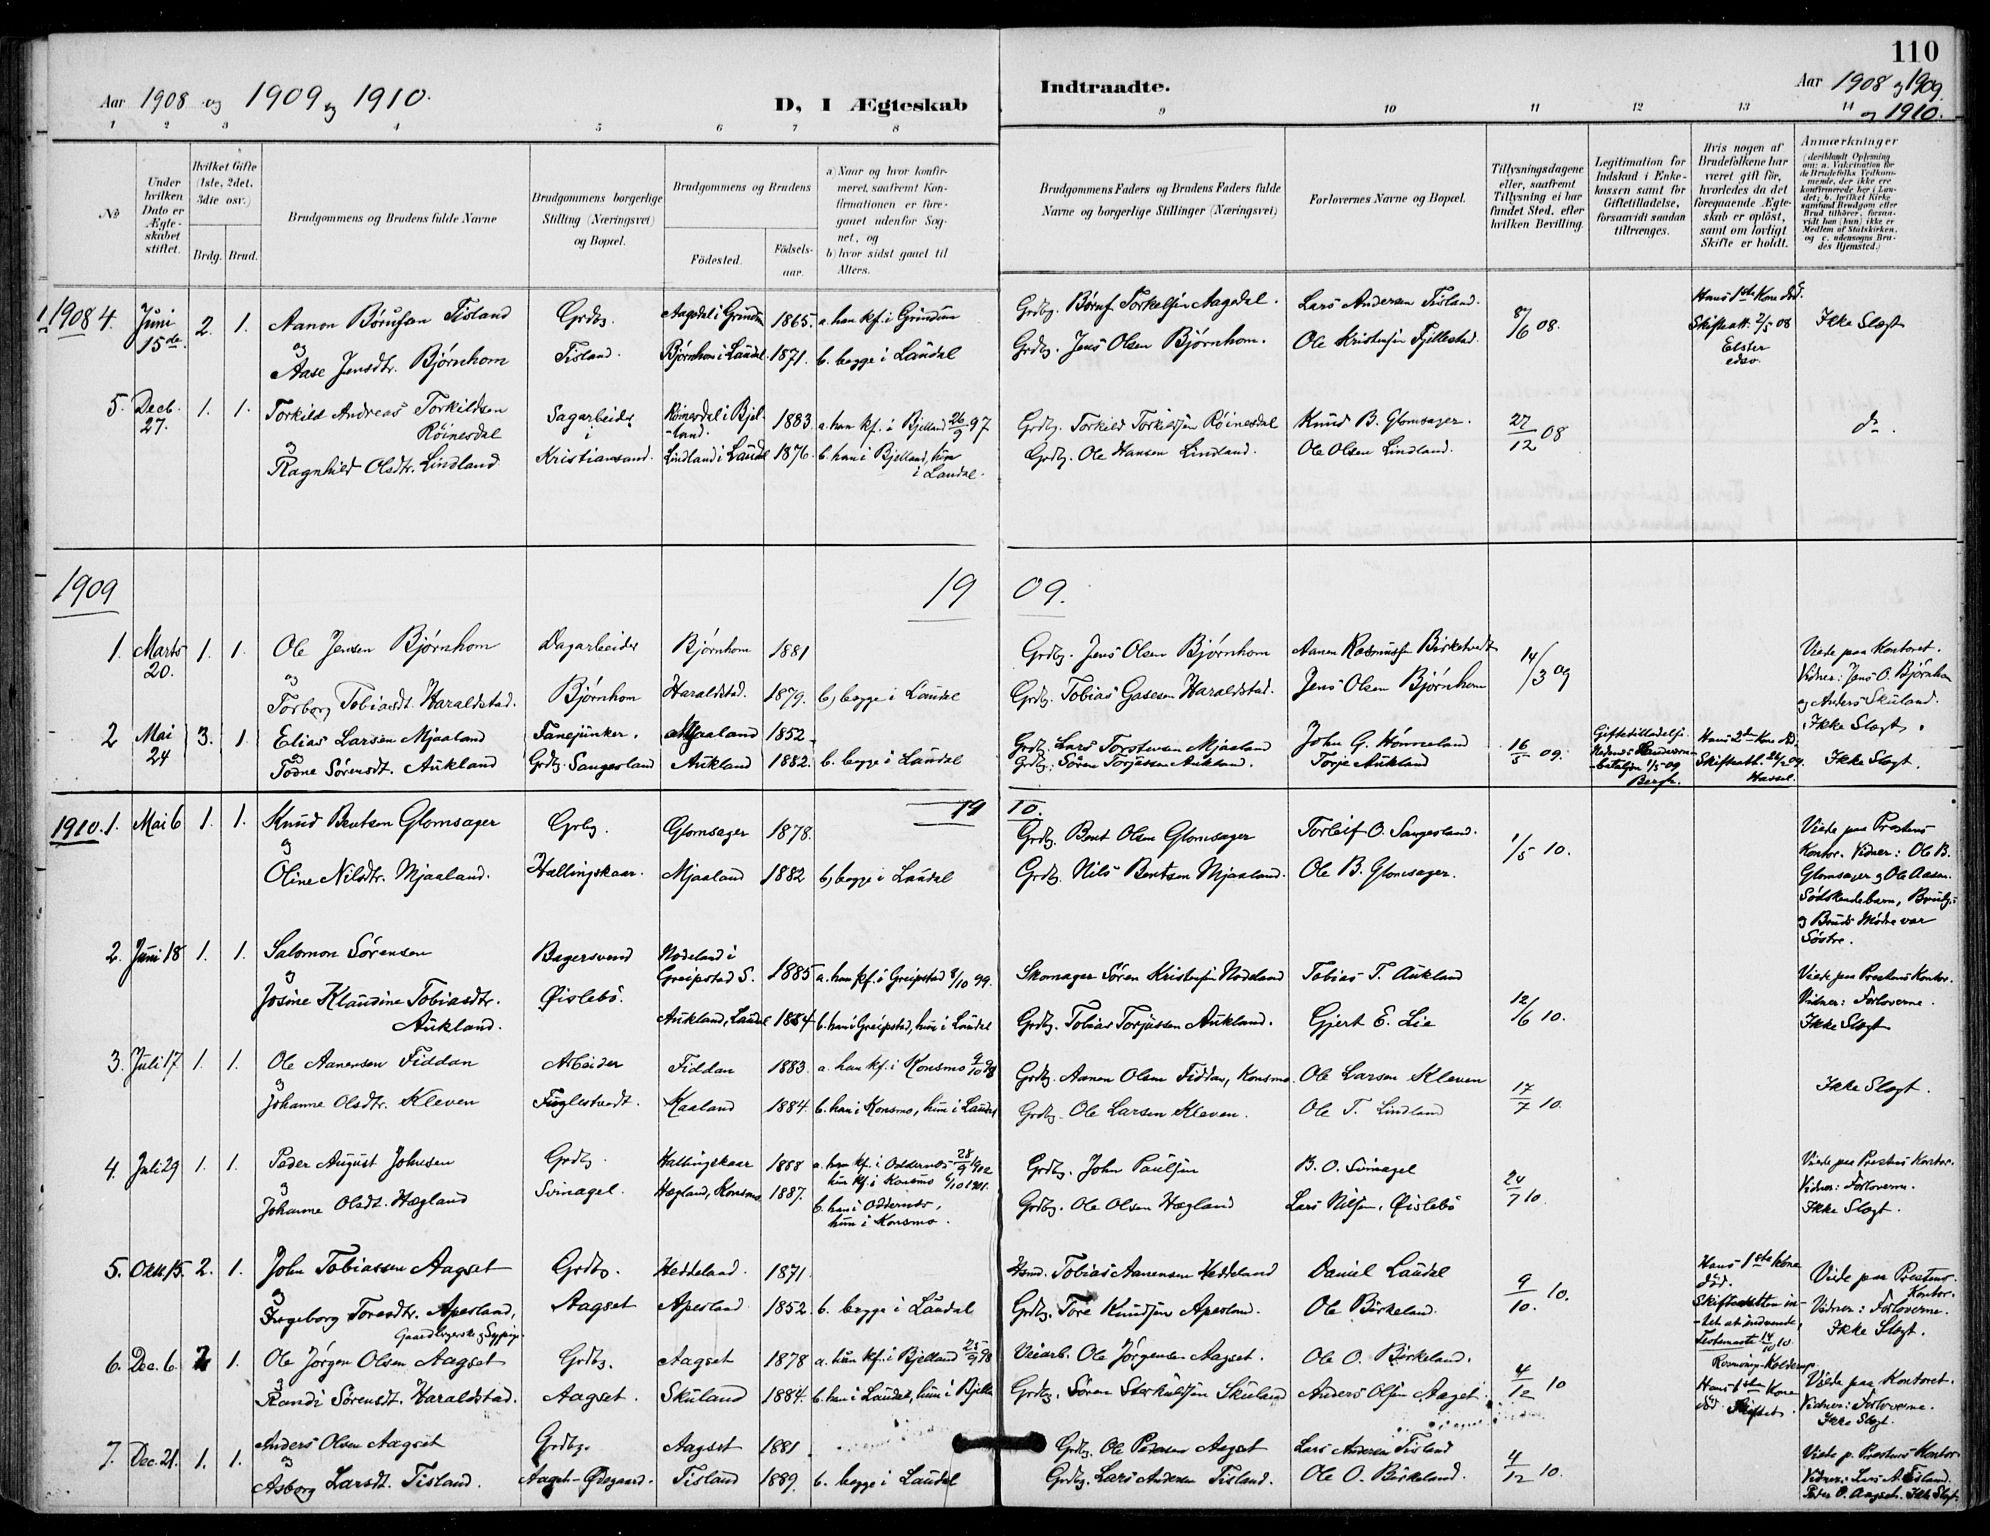 110
Aar 1908 og 1909 og 1910.
D, I Ægteskab
Indtraadte.
Aar 1908 og 1909
og 1910.
1 2 3 4 5 6 7 8 9 10 11 12 13 14
No
Under hvilken Dato er Ægteskabet stiftet.
Hvilket Gifte (1ste, 2det, 3die osv.)
Brdg. Brud.
Brudgommens og Brudens fulde Navne
Brudgommens borgerlige Stilling (Næringsvei) og Bopæl.
Brudgommens og Brudens
Fødested.
Fødselsaar.
a) Naar og hvor konfirmeret, saafremt Konfirmationen er foregaaet udenfor Sognet, og
b) hvor sidst gaaet til Alters.
Brudgommens Faders og Brudens Faders fulde Navne og borgerlige Stillinger (Næringsvei)
Forlovernes Navne og Bopæl.
Tillysningsdagene eller, saafremt Tillysning ei har fundet Sted, efter hvilken Bevilling.
Legitimation for Indskud i Enkekassen samt for Giftetilladelse, forsaavidt saadan tiltrænges.
Hvis nogen af Brudefolkene har været gift før, hvorledes da det foregaaende Ægteskab er opløst, samt om lovligt Skifte er holdt.
Anmærkninger
1908 4. Juni 15de 2. 1. Aanon Børufsen Tisland Grdbr. Aagedal i Grindum 1865. a. han kf. i Grindum Grdbr. Børuf Torkelsen Aagedal. Lars Andersen Tisland. 8/6 08. Hans 1ste Kone død. Skifteatt. 2/5 08 Ikke Slægt
og
Aase Jensdtr. Bjørnhom Tisland. Bjørnhom i Laudal 1871. b. begge i Laudal Grdbr. Jens Olsen Bjørnhom. Ole Kristensen Fjellestad.
5. Decb. 27. 1. 1. Torkild Andreas Torkildsen Røinesdal Sagarbeider i Røinesdal i Bjelland. 1883. a. han kf. i Bjelland 26/9 97 Grdbr. Torkild Torkildsen Røinesdal Knud B. Glomsager. 27/12 08 do.
og
Ragnhild Olsdtr. Lindland Kristiansand. Lindland i Laudal 1876. b. han i Bjelland, hun i Laudal. Grdbr. Ole Hansen Lindland. Ole Olsen Lindland.
1909 1909.
1. Marts 20. 1. 1. Ole Jensen Bjørnhom Dagarbeider Bjørnhom 1881 Grdbr. Jens Olsen Bjørnhom Aanen Rasmussen Birketvedt 14/3 09 Viede paa Kontoret.
og
Torborg Tobiasdt. Haraldstad. Bjørnhom Haraldstad. 1879. b) begge i Laudal Grdbr. Tobias Gasesen Haraldstad. Jens Olsen Bjørnhom Vidner: Jens O. Bjørnhom og Anders Skuland. Ikke Slægt.
2 Mai 24 3. 1 Elias Larsen Mjaaland Fanejunker. Mjaaland 1852. Grdbr. Lars Torstensen Mjaaland John G. Hønneland 16/5 09. Giftetilladelse Hans 2den Kone død. Ikke Slægt.
og
Todne Sørensdt. Aukland Grdbr. Sangesland Aukland 1882. b. begge i Laudal Grdbr. Søren Torjussen Aukland. Torje Aukland
1910. 1910.
1. Mai 6 1. 1. Knud Bentsen Glomsager Grbr. Glomsager 1878. Grdbr. Bent Olsen Glomsager Torleif O. Sangesland. 1/5 10. Viede paa Prestens Kontor. Vidner: Ole B. Glomsager og Ole Aasen.
og
Oline Nilsdtr. Mjaaland. Hallingskaar. Mjaaland 1882 b) begge i Laudal Grdbr. Nils Bentsen Mjaaland. Ole B. Glomsager. Sødskendebarn, Brudg. og Bruds Mødre var Søstre.
2. Juni 18 1. 1. Salomon Sørensen Bagersvend Nodeland i Greipstad S. 1885 a. han kf. i Greipstad 8/10 99. Skomager Søren Kristensen Nodeland Tobias T. Aukland 12/6 10. Viede paa Prestens Kontor. Vidner: Forloverne. Ikke Slægt
og
Josine Klaudine Tobiasdtr. Aukland. Øislebø. Aukland, Laudal 1884 b. han i Greipstad, hun i Laudal Grdbr. Tobias Torjussen Aukland. Gjert E. Lie
3. Juli 17 1. 1. Ole Aanensen Fiddan Arbeider Fiddan 1883. a. han kf. i Konsmo 9/10 98 Grdbr. Aanen Olsen Fiddan, Konsmo. Ole Larsen Kleven 17/7 10. Ikke Slægt.
og
Johanne Olsdtr. Kleven Fuglestvedt. Kaaland 1884. b. han i Konsmo, hun i Laudal Grdbr. Ole Larsen Kleven. Ole T. Lindland
4. Juli 29 1. 1. Peder August Johnsen Grdbr. Hallingskaar 1888 a. han kf. i Oddernes 28/9 1902 hun kf. i Konsmo 6/10 1901. Grdbr. John Paulsen B. O. Svinagel 24/7 10. Viede paa Prestens Kontor. Vidner: Forloverne. Ikke Slægt.
og
Johanne Olsdt. Hægland Svinagel. Hægland, Konsmo 1887. b. han i Oddernes, hun i Konsmo. Grdbr. Ole Olsen Hægland Lars Nilsen, Øislebø
5. Okt. 15. 2. 1. John Tobiassen Aagset Grdbr. Heddeland. 1871. Hsmd. Tobias Aanensen Heddeland Daniel Laudal 9/10. 10. Hans 1ste Kone død. Viede paa Prestens Kontor. Vidner: Forloverne. Ikke Slægt.
og
Ingeborg Toresdtr. Apesland, Aagset Apesland 1852. b. begge i Laudal Grdbr. Tore Knudsen Apesland. Ole Birkeland.
6. Dec. 6. 2 1. Ole Jørgen Olsen Aagset Grdbr. Aagset 1878 a. hun kf. i Bjelland 25/9 98 Veiarb. Ole Jørgensen Aagset. Ole O. Birkeland. 4/12 10 Hans 1ste Kone død. Viede paa Kontoret. Vidner: Forloverne. Ikke Slægt.
og
Randi Sørensdt. Haraldstad. Aagset. Skuland 1884. b. han i Laudal, hun i Bjelland Grdbr. Søren Sterkulsen Skuland Anders Olsen Aagset
7. Dec. 21. 1. 1. Anders Olsen Aagset Grdbr. Aagset 1881 Grdbr. Ole Pedersen Aagset Lars Andersen Tisland 4/12 10. Viede p. Prestens Kontor
og
Asborg Larsdt. Tisland. Aagset-Ødegaard. Tisland 1889. b. begge i Laudal Grdbr. Lars Andersen Tisland. Ole O. Birkeland. Vidner: Lars A. Tisland. Peder O. Aagset. Ikke Slægt